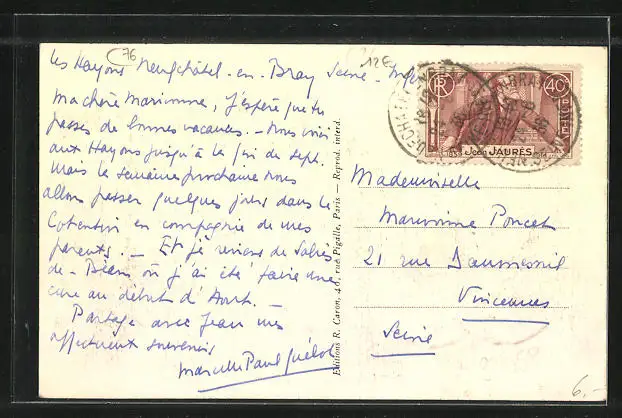 76
12€
Les Hayons Neufchâtel-en-Bray Seine-Infre
Ma chère Marionne, j'espère que tu
passes de bonnes vacances. - Nous voici
aux Hayons jusqu'à la fin de sept.
Mais la semaine prochaine nous
allons passer quelques jours dans le
Cotentin en compagnie de mes
parents. - Et je reviens de Salies
de-Béarn, où j'ai été faire une
cure au début d'Août. -
Partage avec Jean mes
affectueux souvenirs
Marcelle Paul
Editions R. Caron, 48, rue Pigalle, Paris — Reprod. interd.
RF
40c
POSTES
Jean JAURÈS
Mademoiselle
Marionne Poncet
21 rue Daumesnil
Vincennes
Seine
6.-